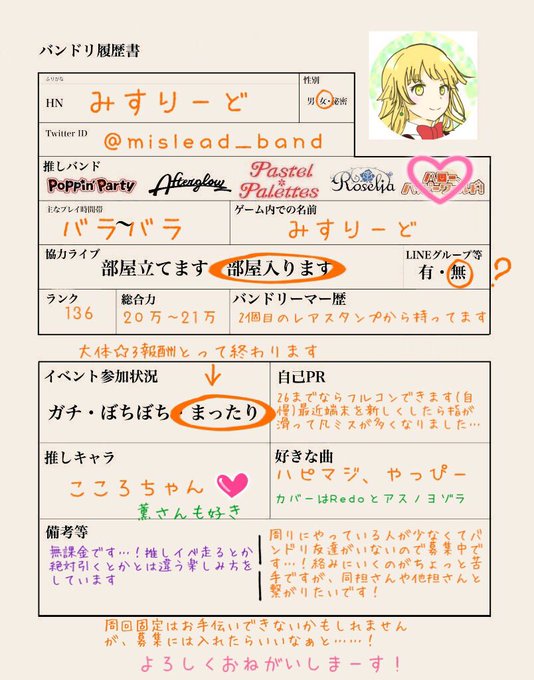 バンドリ履歴書
ふりがな
HN みすりーど
性別
男・女・秘密
Twitter ID
@mislead_band
推しバンド
Poppin'Party Afterglow Pastel*Palettes Roselia ハロー、ハッピーワールド!
主なプレイ時間帯
バラ〜バラ
ゲーム内での名前
みすりーど
協力ライブ
部屋立てます 部屋入ります
LINEグループ等
有・無 ?
ランク
136
総合力
20万〜21万
バンドリーマー歴
2個目のレアスタンプから持ってます
大体☆3報酬とって終わります
イベント参加状況
ガチ・ぼちぼち・まったり
自己PR
26までならフルコンできます(自
慢)最近端末を新しくしたら指が
滑って凡ミスが多くなりました…
推しキャラ
こころちゃん
薫さんも好き
好きな曲
ハピマジ、やっぴー
カバーはRedoとアスノヨゾラ
備考等
無課金です…!推しイベ走るとか
絶対引くとかとは違う楽しみ方を
しています
周りにやっている人が少なくてバ
ンドリ友達がいないので募集中で
す…!絡みにいくのがちょっと苦
手ですが、同担さんや他担さんと
繋がりたいです!
周回固定はお手伝いできないかもしれません
が、募集には入れたらいいなぁと……!
よろしくおねがいしまーす!